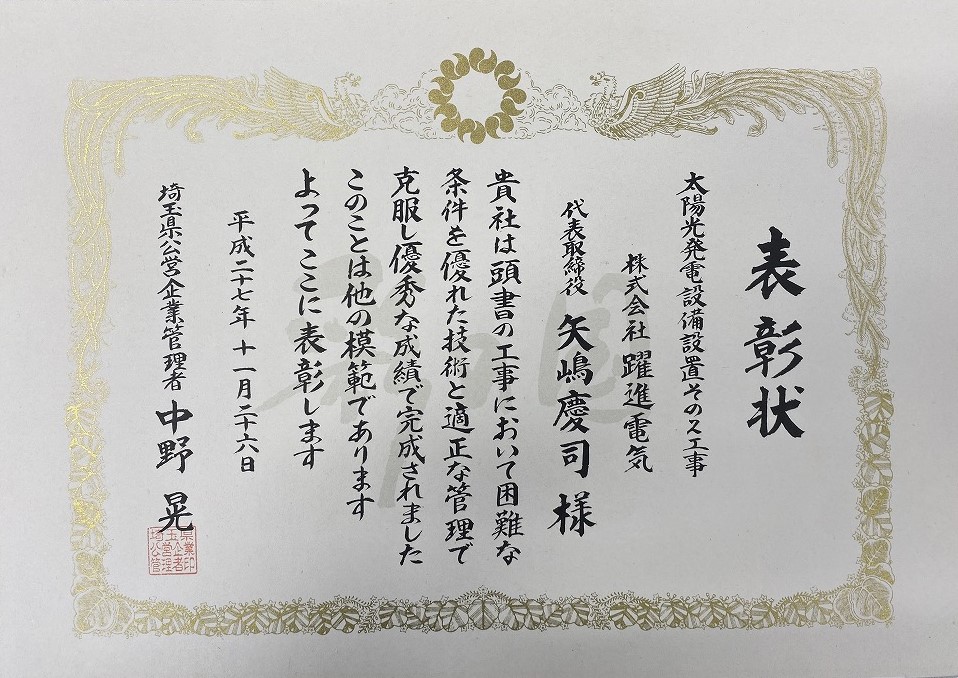 表彰状
太陽光発電設備設置その2工事
株式会社 躍進電気
代表取締役 矢嶋慶司 様
貴社は頭書の工事において困難な
条件を優れた技術と適正な管理で
克服し優秀な成績で完成されました
このことは他の模範であります
よってここに表彰します
平成二十七年 十一月二十六日
埼玉県公営企業管理者 中野 晃
県業印
玉企者
営理
埼公管
彩の国